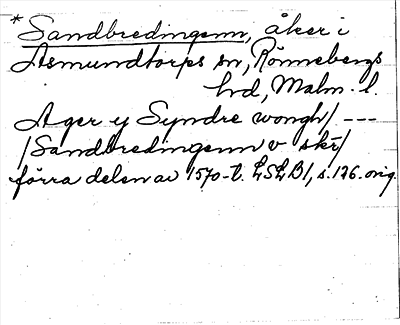 *Sandbredingenn, åker i
Asmundtorps sn, Rönnebergs
hd, Malm. l.
Ager y Syndre wongh/ ---
/Sandbredingenn v skr/
förra delen av 1570-t. LSLB1, s. 126. orig.